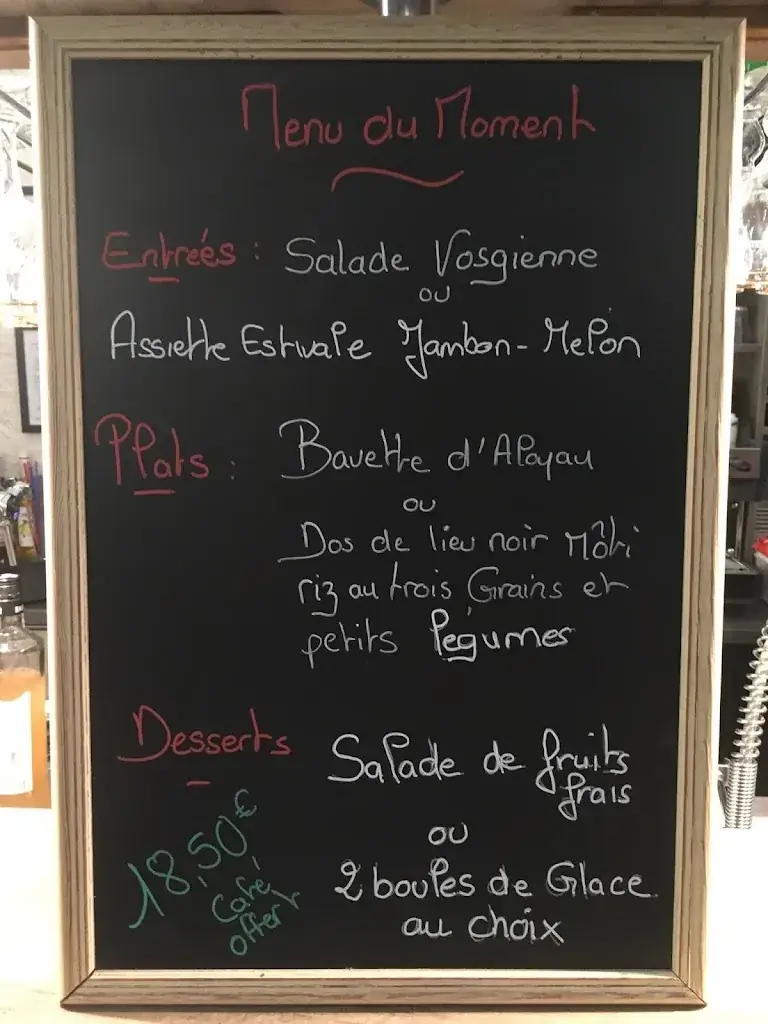 Menu du Moment
Entrées : Salade Vosgienne
ou
Assiette Estivale Jambon-Melon
Plats : Bavette d'Aloyau
ou
Dos de lieu noir Rôti
riz au trois Grains et
petits légumes
Desserts Salade de fruits
frais
ou
2 boules de Glace
au choix
18,50€
Café
offert